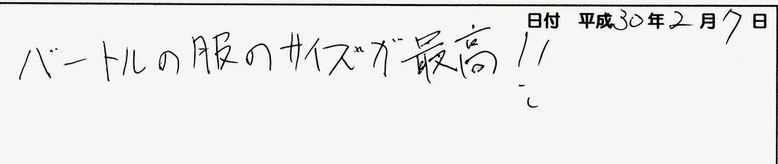 日付 平成30年2月7日
バートルの服のサイズが最高!!